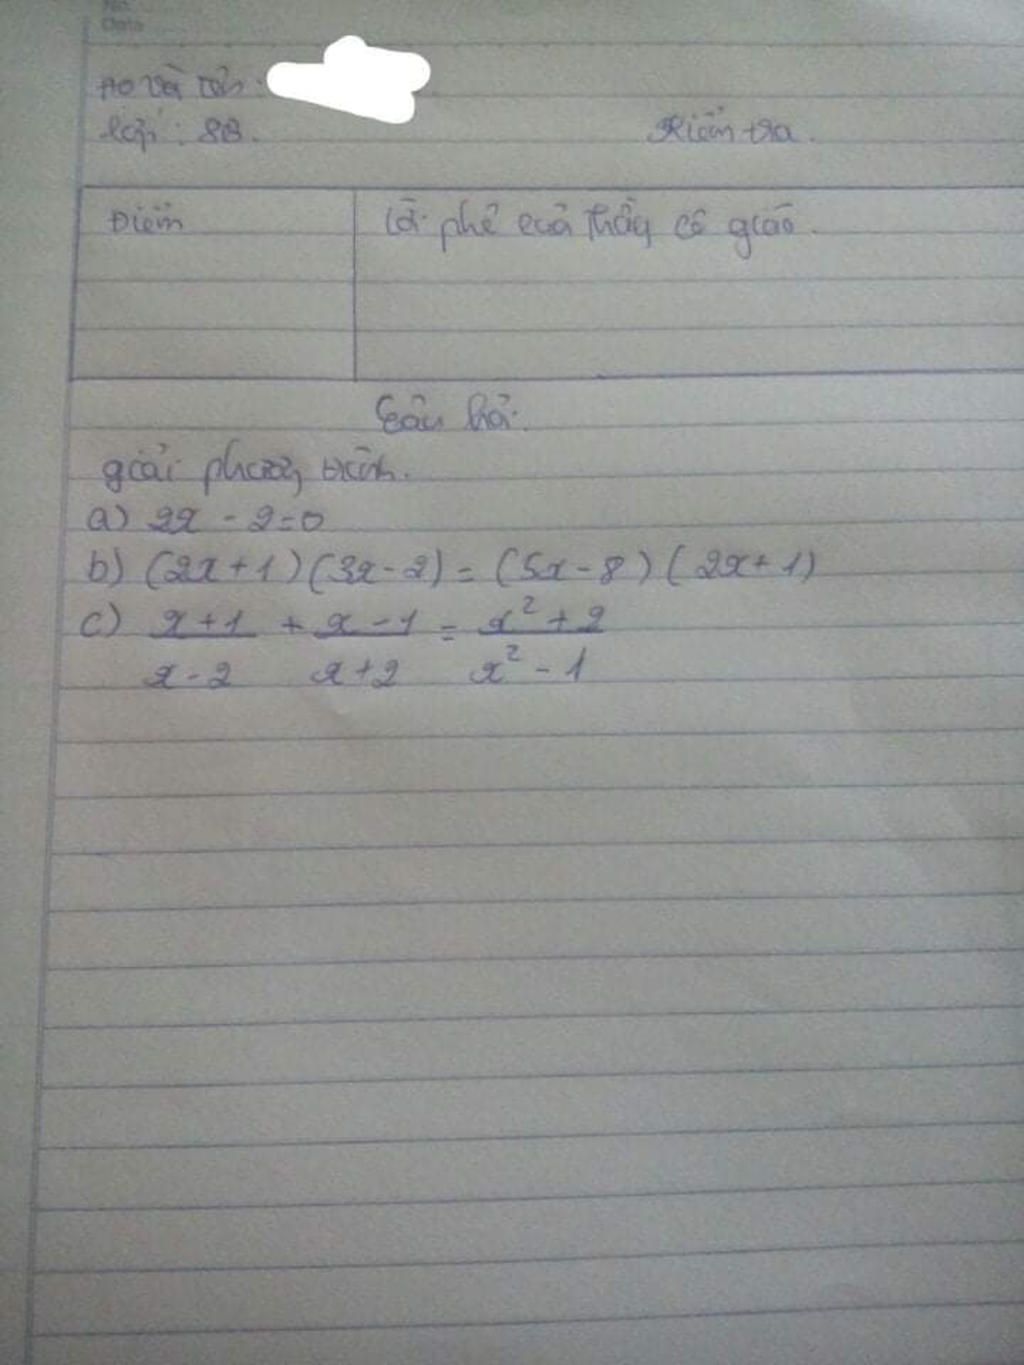 No.
Date
Họ và tên :
Lớp : 8B.
Kiểm tra.
Điểm
Lời phê của thầy cô giáo.
Câu hỏi.
giải phương trình.
a) 2x - 2 = 0
b) (2x + 1) (3x - 2) = (5x - 8) (2x + 1)
c) x + 1 / x - 2 + x - 1 / x + 2 = x² + 2 / x² - 1